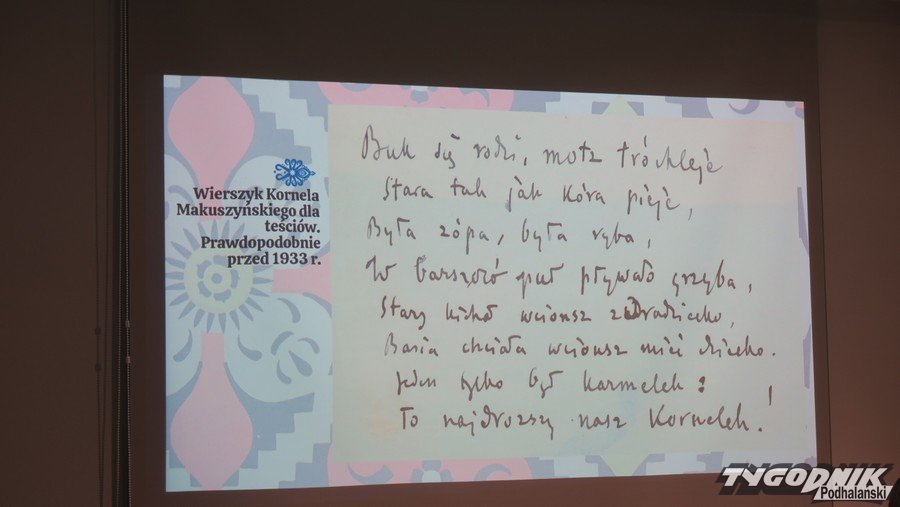 Wierszyk Kornela
Makuszyńskiego dla
teściów.
Prawdopodobnie
przed 1933 r.
Buk się rodzi, motz tróchleje
Stara tak jak kóra pieje,
Była zópa, była ryba,
W barszczó puł pływało grzyba,
Stary kichał wcionsz zdradziecko,
Basia chciała wcionsz mići dziecko.
Jeden tylko był karmelek:
To najdrozszy nasz Kornelek!
TYGODNIK
Podhalański